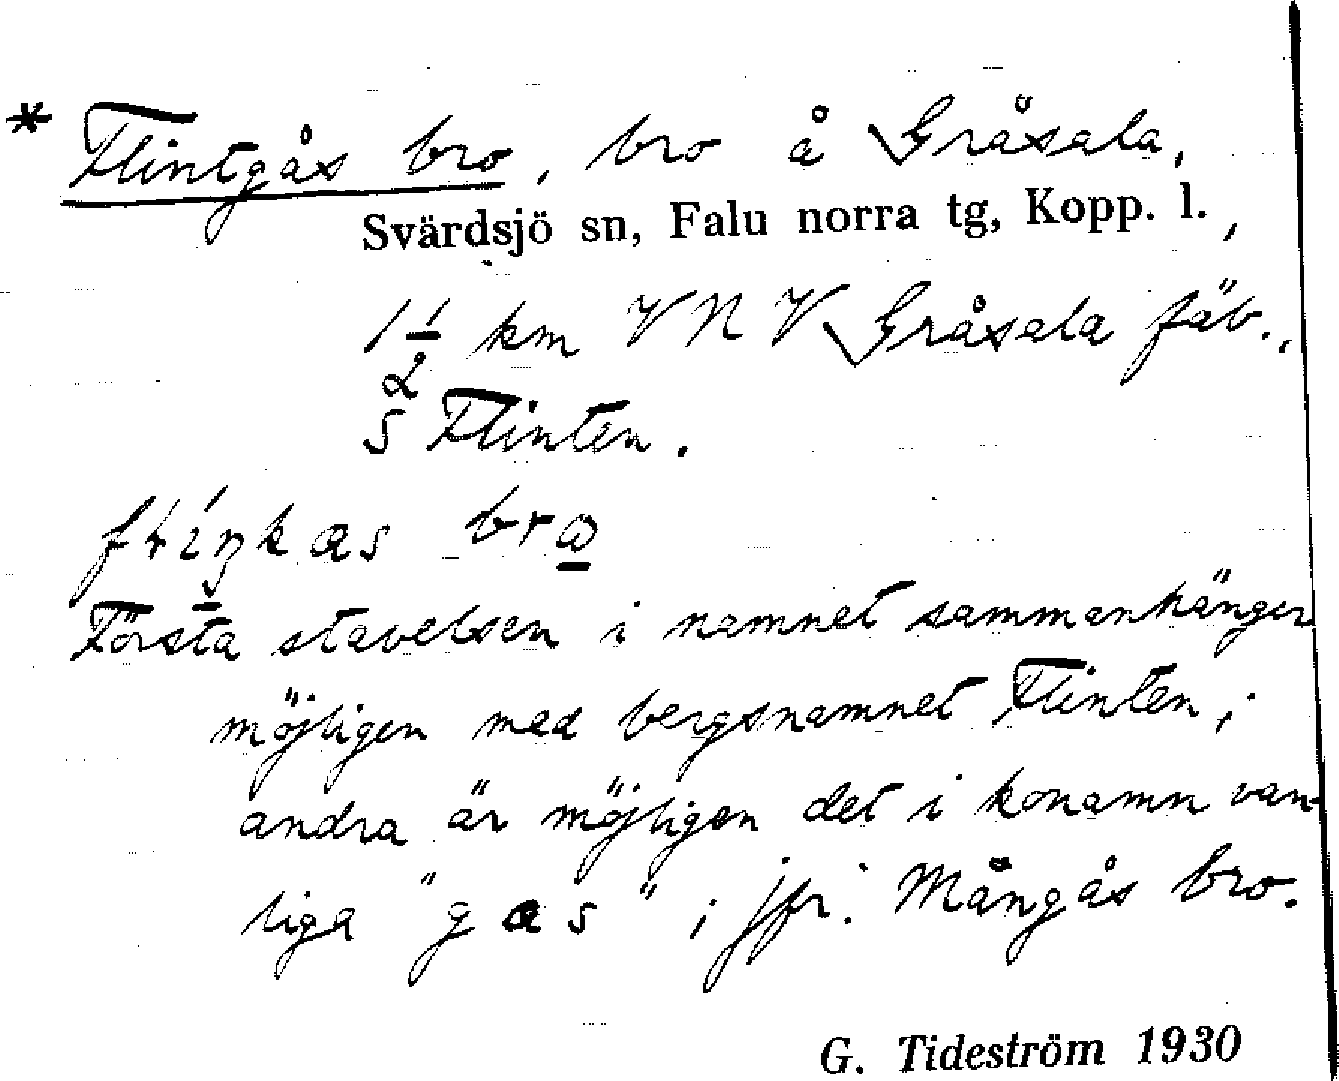 * Flintgås bro, bro å Gråsala,
Svärdsjö sn, Falu norra tg, Kopp. l.,
1 1/2 km VNV Gråsala fäb.,
S Flinten.
bro
Första stavelsen i namnet sammanhänger
möjligen med bergsnamnet Flinten;
andra är möjligen det i konamn van-
liga "gas"; jfr. Mångås bro.
G. Tideström 1930